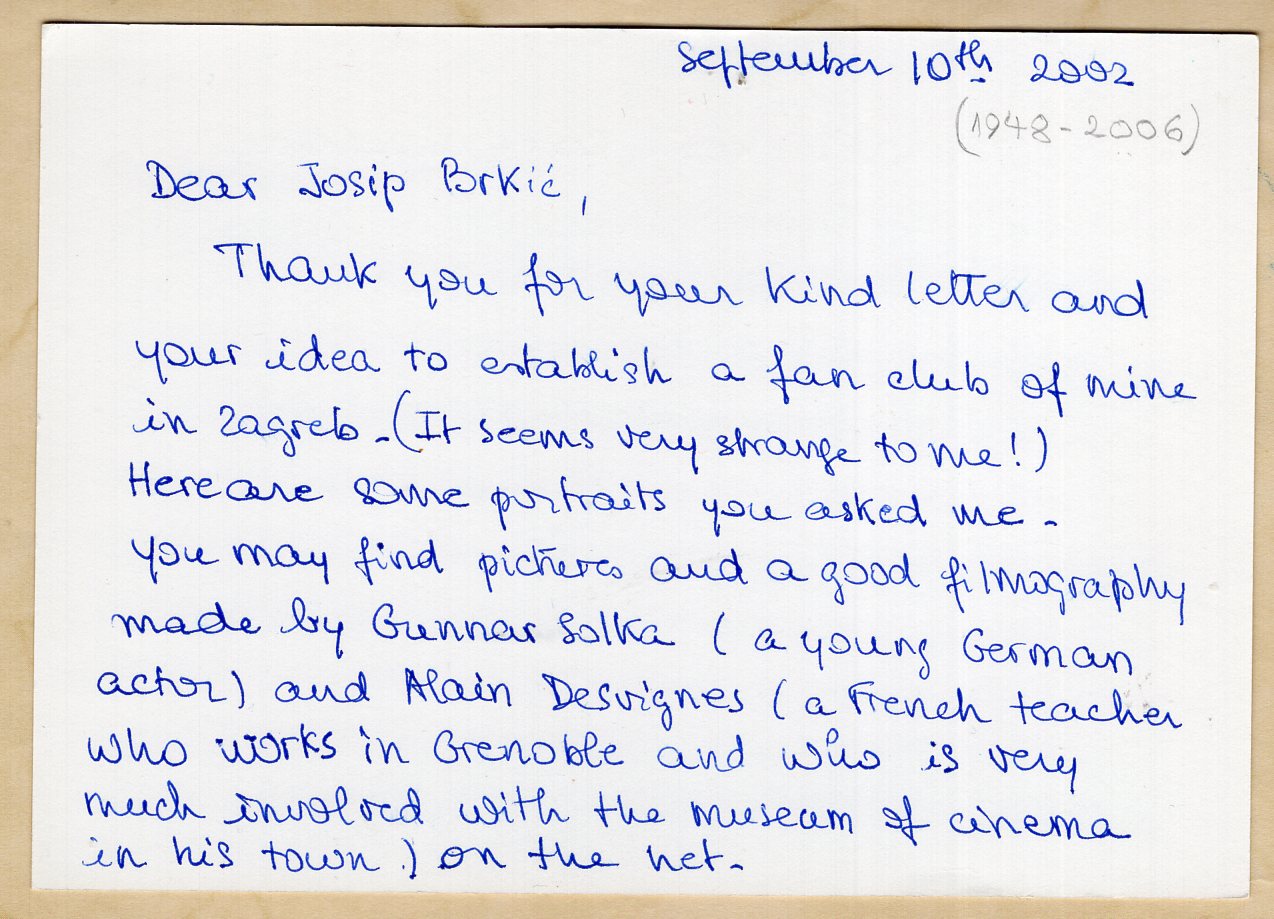 September 10th 2002
(1948-2006)
Dear Josip Brkić,
Thank you for your kind letter and
your idea to establish a fan club of mine
in Zagreb. (It seems very strange to me!)
Here are some portraits you asked me.
You may find pictures and a good filmography
made by Gunnar Solka (a young German
actor) and Alain Desvignes (a French teacher
who works in Grenoble and who is very
much involved with the museum of cinema
in his town.) on the net.